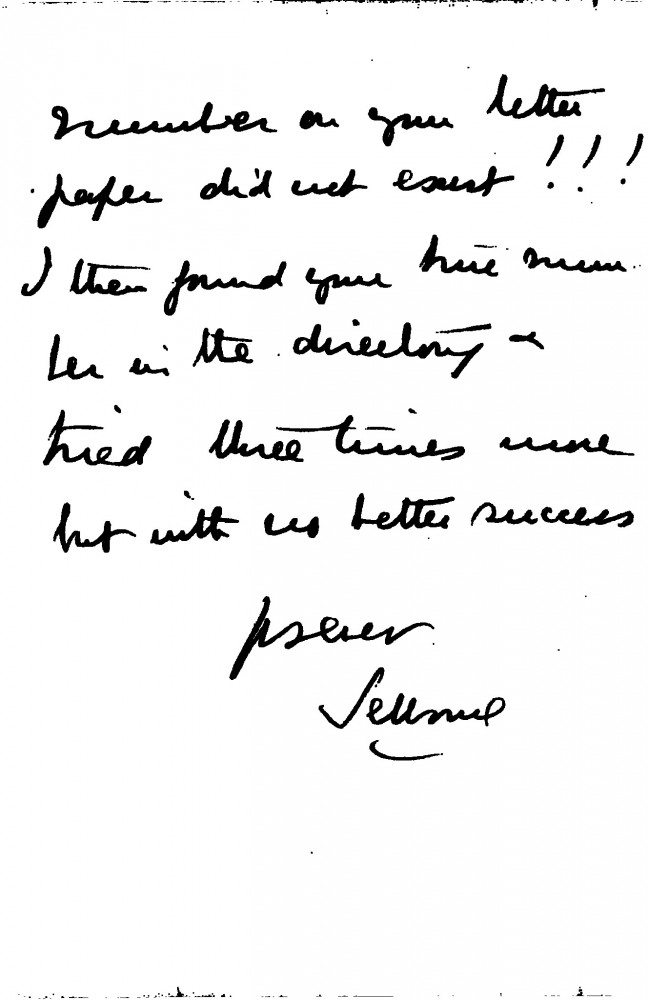 number on your letter
paper did not exist !!!
I then found your true num
ber in the directory &
tried three times more
but with no better success
Yrs ever